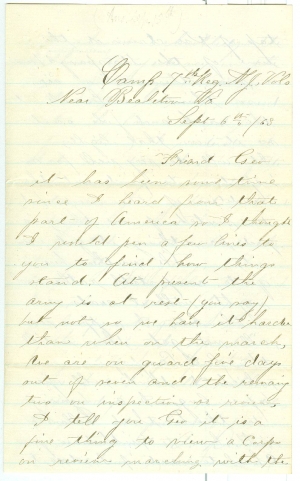 Camp 7th Reg. N.J. Vols
Near Bealeton Va
Sept 6th /63
Friend Geo
it has been some time
since I heard from that
part of America so I thought
I would pen a few lines to
you to find how things
stand. At present the
army is at rest (you say)
but not so we have it harder
than when on the march,
We are on guard five days
out of seven and the remaing
two on inspection or review,
I tell you Geo it is a
fine thing to view a Corps
on review marching with the